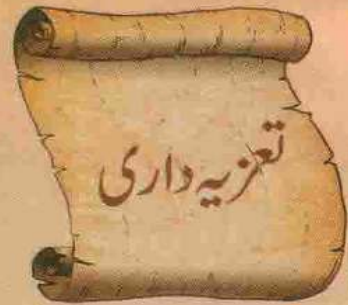 تعزیہ داری